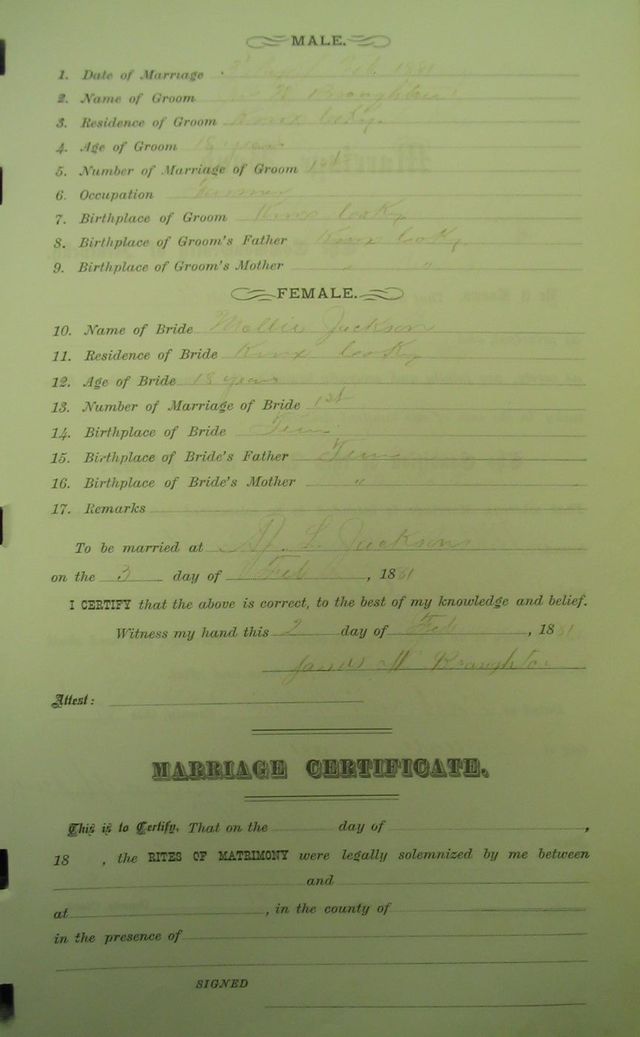 MALE.
1. Date of Marriage Feb 1881
2. Name of Groom W Broughton
3. Residence of Groom Knox Co Ky
4. Age of Groom 18 years
5. Number of Marriage of Groom 1st
6. Occupation Farmer
7. Birthplace of Groom Knox Co Ky
8. Birthplace of Groom's Father Knox Co Ky
9. Birthplace of Groom's Mother " "
FEMALE.
10. Name of Bride Mollie Jackson
11. Residence of Bride Knox Co Ky
12. Age of Bride 18 years
13. Number of Marriage of Bride 1st
14. Birthplace of Bride Tenn.
15. Birthplace of Bride's Father Tenn
16. Birthplace of Bride's Mother "
17. Remarks
To be married at L. Jacksons
on the 3 day of Feb, 1881
I CERTIFY that the above is correct, to the best of my knowledge and belief.
Witness my hand this 2 day of Feb, 1881
W Broughton
Attest:
MARRIAGE CERTIFICATE.
This is to Certify, That on the day of ,
18 , the RITES OF MATRIMONY were legally solemnized by me between
and
at , in the county of
in the presence of
SIGNED